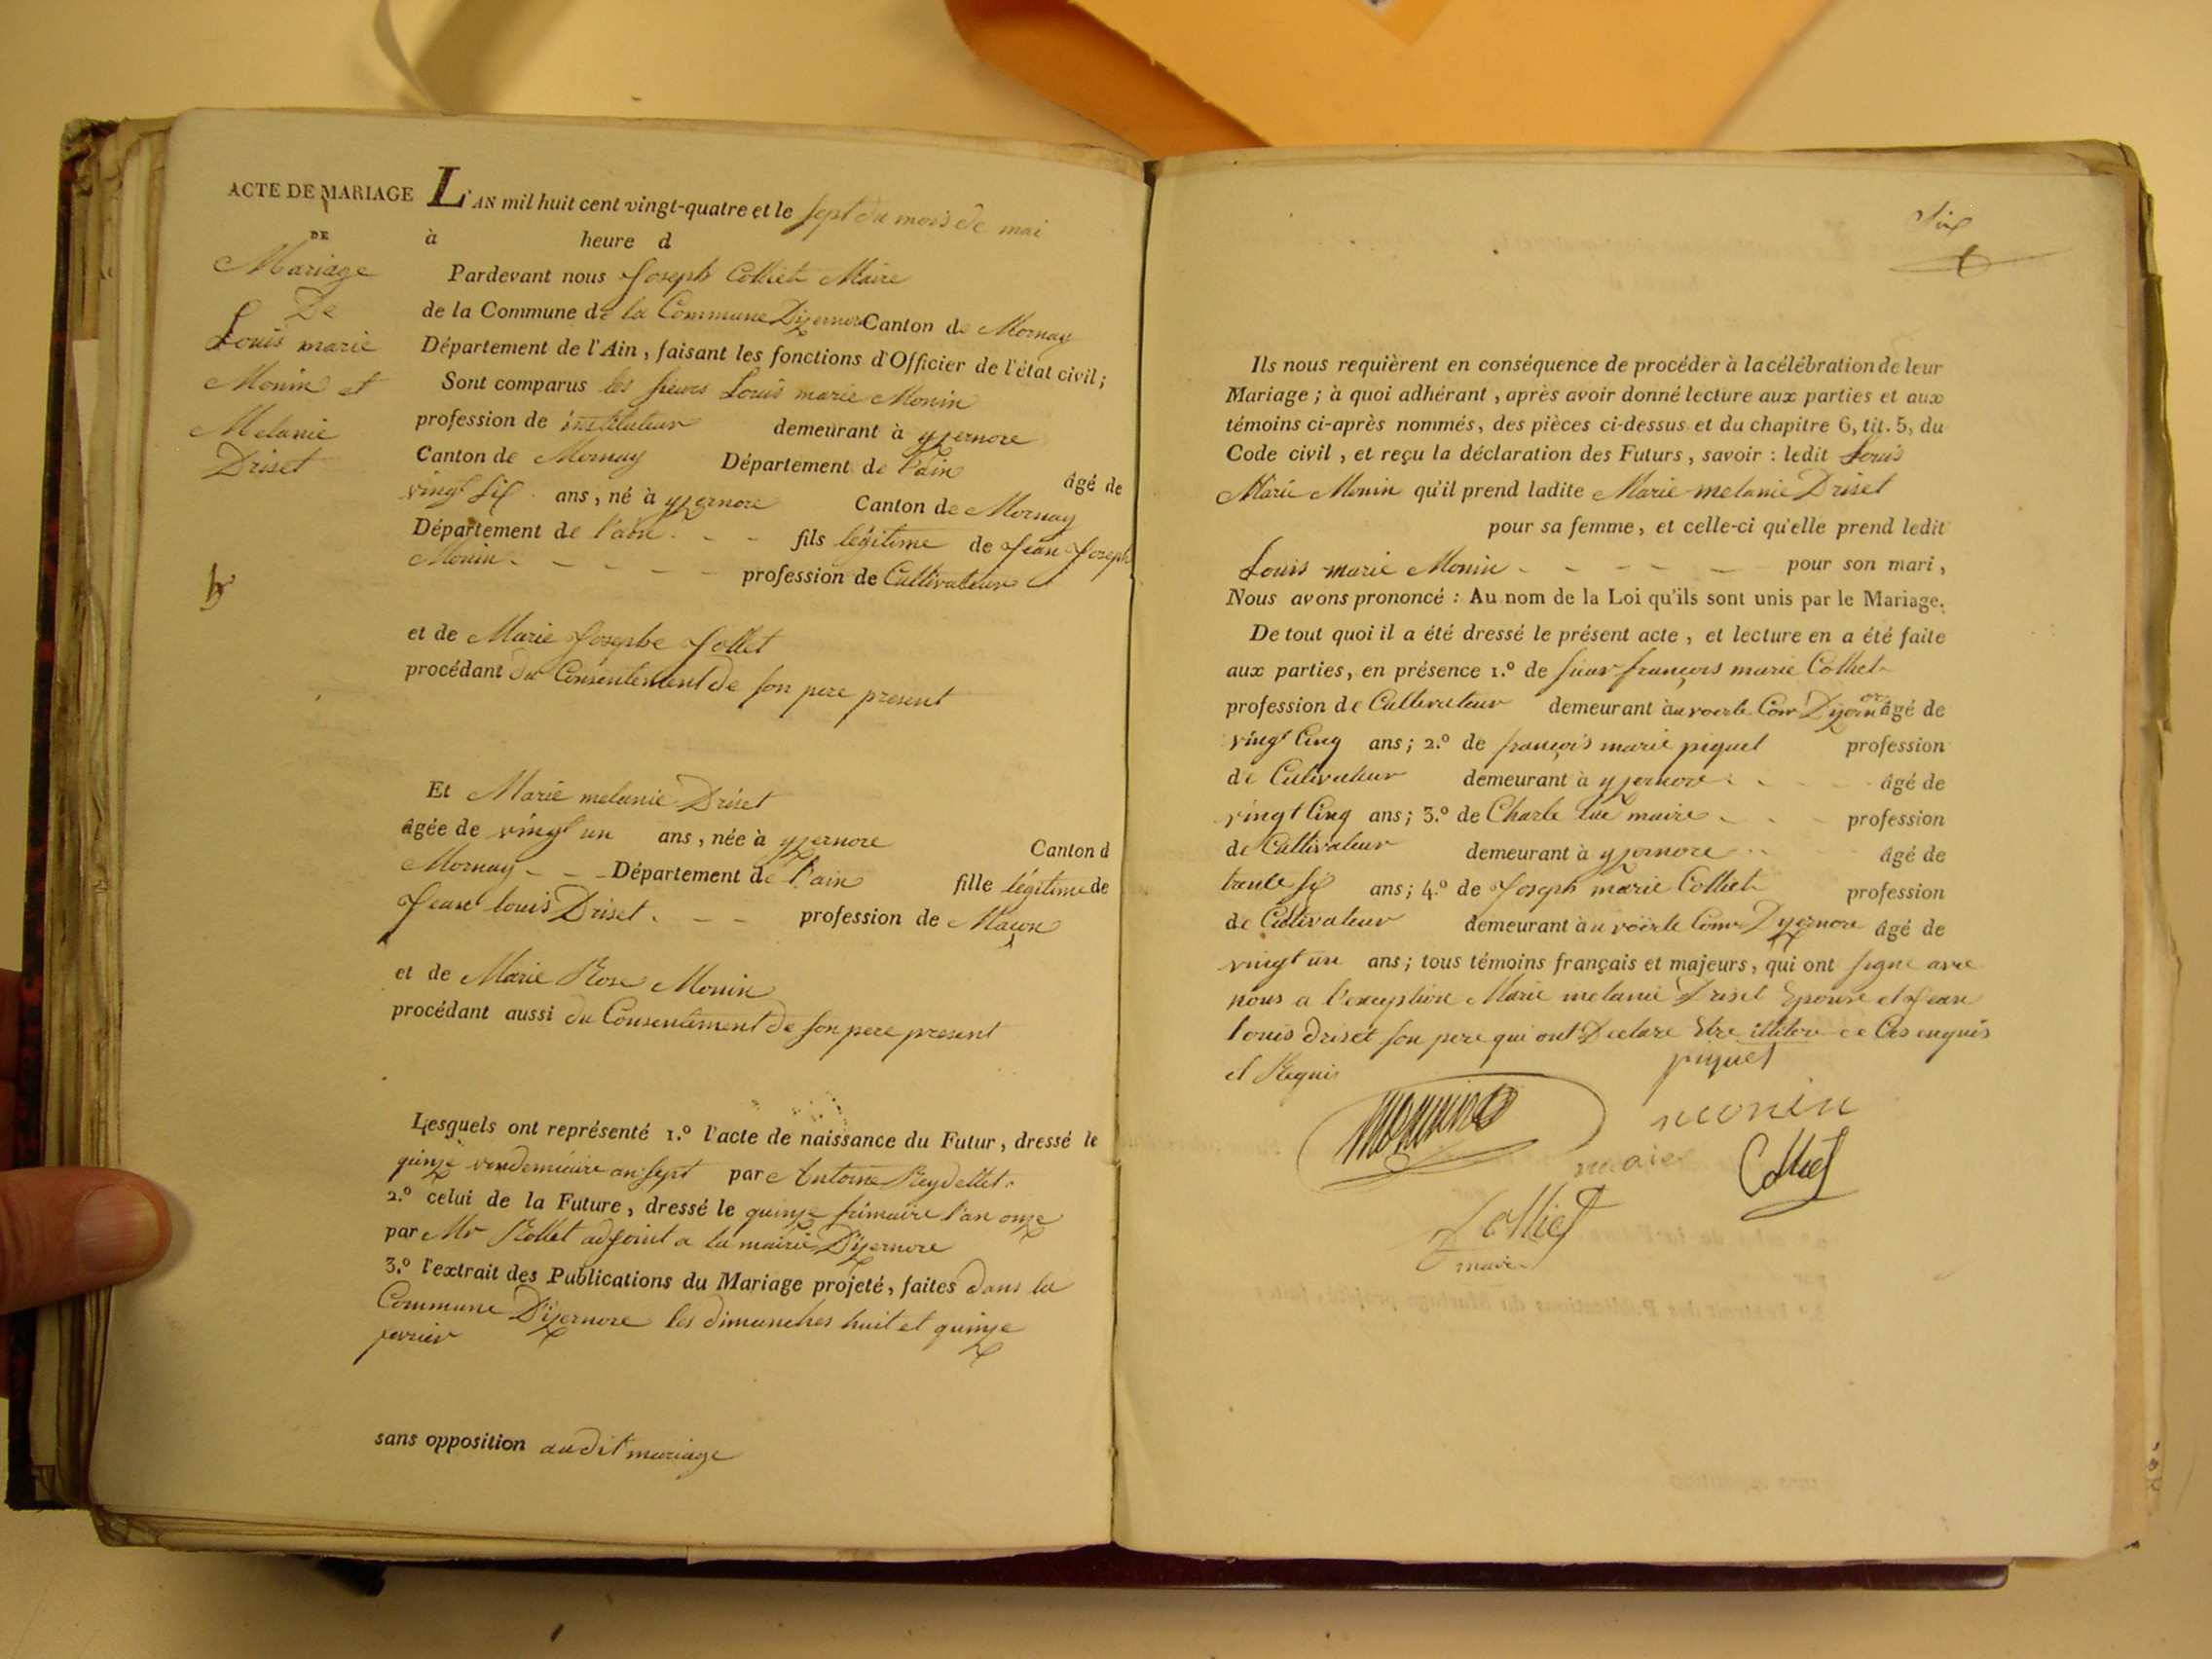 ACTE DE MARIAGE
DE
Mariage
De
Louis marie
Monin et
Melanie
Driset
L'AN mil huit cent vingt-quatre et le sept du mois de mai
à heure d
Pardevant nous Joseph Colliet Maire
de la Commune de la Commune Dizernore Canton de Mornay
Département de l'Ain, faisant les fonctions d'Officier de l'état civil;
Sont comparus les sieurs Louis marie Monin
profession de instituteur demeurant à yzernore
Canton de Mornay Département de l'ain âgé de
vingt six ans, né à yzernore Canton de Mornay
Département de l'ain - - fils légitime de Jean Joseph
Monin - - - - - profession de Cultivateur
et de Marie Josephe Jollet
procédant du Consentement de son pere present
Et Marie melanie Driset
âgée de vingt un ans, née à yzernore Canton d
Mornay - - Département de l'ain fille légitime de
Jean louis Driset - - profession de Maçon
et de Marie Rose Monin
procédant aussi du Consentement de son pere present
Lesquels ont représenté 1.º l'acte de naissance du Futur, dressé le
quinze vendemiaire an sept par Antoine Reydellet.
2.º celui de la Future, dressé le quinze frimaire l'an onze
par Mr Rollet adjoint a la mairie Dizernore
3.º l'extrait des Publications du Mariage projeté, faites dans la
Commune Dizernore les dimanches huit et quinze
fevrier
sans opposition audit mariage
Six
Ils nous requièrent en conséquence de procéder à la célébration de leur
Mariage; à quoi adhérant, après avoir donné lecture aux parties et aux
témoins ci-après nommés, des pièces ci-dessus et du chapitre 6, tit. 5, du
Code civil, et reçu la déclaration des Futurs, savoir: ledit Louis
Marie Monin qu'il prend ladite Marie melanie Driset
pour sa femme, et celle-ci qu'elle prend ledit
Louis marie Monin - - - - - pour son mari,
Nous avons prononcé: Au nom de la Loi qu'ils sont unis par le Mariage.
De tout quoi il a été dressé le présent acte, et lecture en a été faite
aux parties, en présence 1.º de sieur françois marie Colliet
profession de Cultivateur demeurant à Com âgé de
vingt Cinq ans; 2.º de françois marie piquet profession
de Cultivateur demeurant à yzernore âgé de
vingt Cinq ans; 3.º de Charle maire - - profession
de Cultivateur demeurant à yzernore âgé de
trente six ans; 4.º de Joseph marie Colliet profession
de Cultivateur demeurant à Com Dyzernore âgé de
vingt un ans; tous témoins français et majeurs, qui ont signe avec
nous a l'exception Marie melanie Driset Epouse et Jean
louis driset son pere qui ont Declare Etre de Ces enquis
et Requis
piquet
monin
monin
maire
Colliet
Colliet
maire